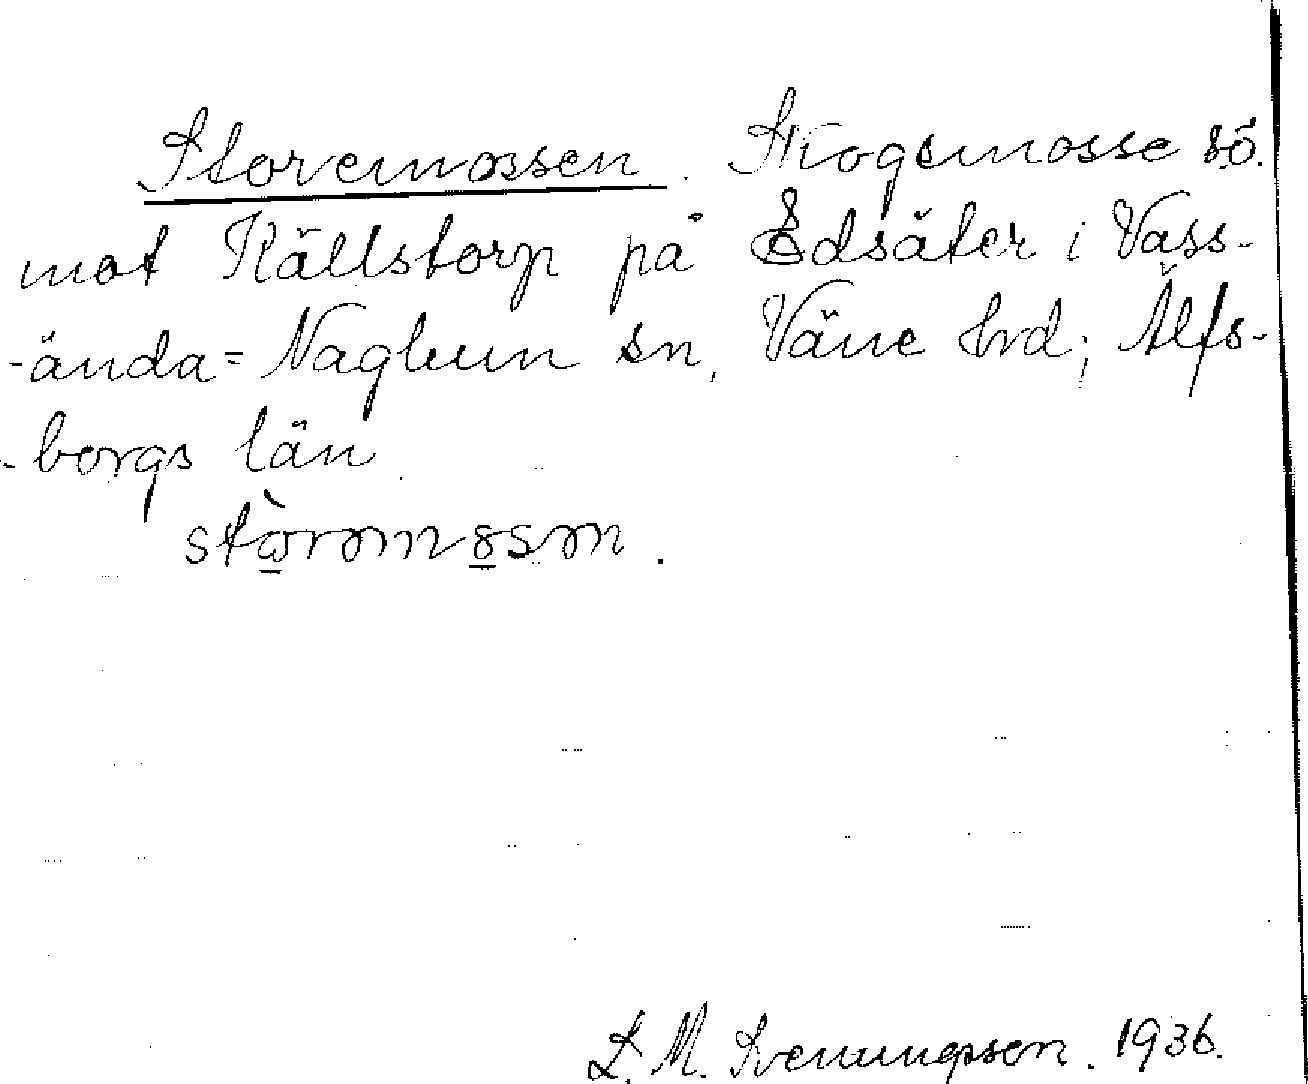 Storemossen. Skogsmosse sö.
mot Källstorp på Edsäter i Vass-
-ända=Naglum sn, Väne hrd; Älfs-
-borgs län
L. M. Svenungsson. 1936.